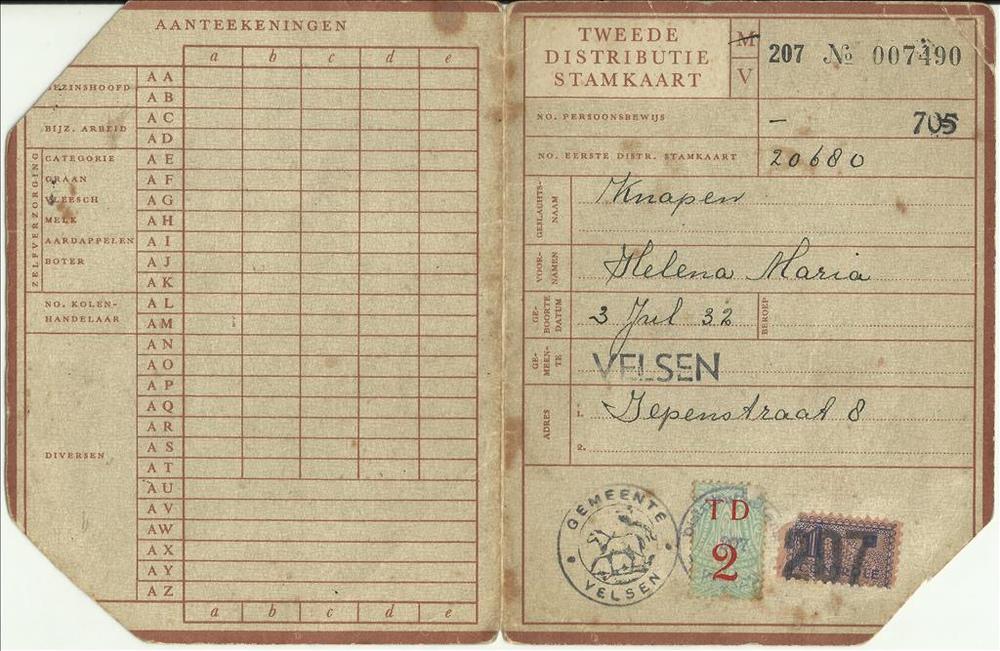 AANTEEKENINGEN
a b c d e
GEZINSHOOFD
A A
A B
BIJZ. ARBEID
A C
A D
ZELFVERZORGING
CATEGORIE
A E
GRAAN
A F
VLEESCH
A G
MELK
A H
AARDAPPELEN
A I
BOTER
A J
A K
NO. KOLEN-
HANDELAAR
A L
A M
DIVERSEN
A N
A O
A P
A Q
A R
A S
A T
A U
A V
AW
A X
A Y
A Z
a b c d e
TWEEDE
DISTRIBUTIE
STAMKAART
M
V
207 № 007490
NO. PERSOONSBEWIJS
– 705
NO. EERSTE DISTR. STAMKAART 20680
GESLACHTS-
NAAM
Knapen
VOOR-
NAMEN
Helena Maria
GE-
BOORTE
DATUM
3 Jul 32
BEROEP
GE-
MEEN-
TE
VELSEN
ADRES
1. Iepenstraat 8
2.
GEMEENTE
VELSEN
TD
2
207